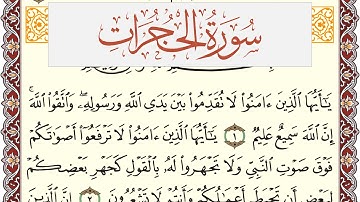 سُورَةُ الْحُجُرَاتِ
يَـٰٓأَيُّهَا ٱلَّذِينَ ءَامَنُوا۟ لَا تُقَدِّمُوا۟ بَيْنَ يَدَىِ ٱللَّهِ وَرَسُولِهِۦ ۖ وَٱتَّقُوا۟ ٱللَّهَ ۚ
إِنَّ ٱللَّهَ سَمِيعٌ عَلِيمٌ ١ يَـٰٓأَيُّهَا ٱلَّذِينَ ءَامَنُوا۟ لَا تَرْفَعُوٓا۟ أَصْوَٰتَكُمْ
فَوْقَ صَوْتِ ٱلنَّبِىِّ وَلَا تَجْهَرُوا۟ لَهُۥ بِٱلْقَوْلِ كَجَهْرِ بَعْضِكُمْ
لِبَعْضٍ أَن تَحْبَطَ أَعْمَـٰلُكُمْ وَأَنتُمْ لَا تَشْعُرُونَ ٢ إِنَّ ٱلَّذِينَ